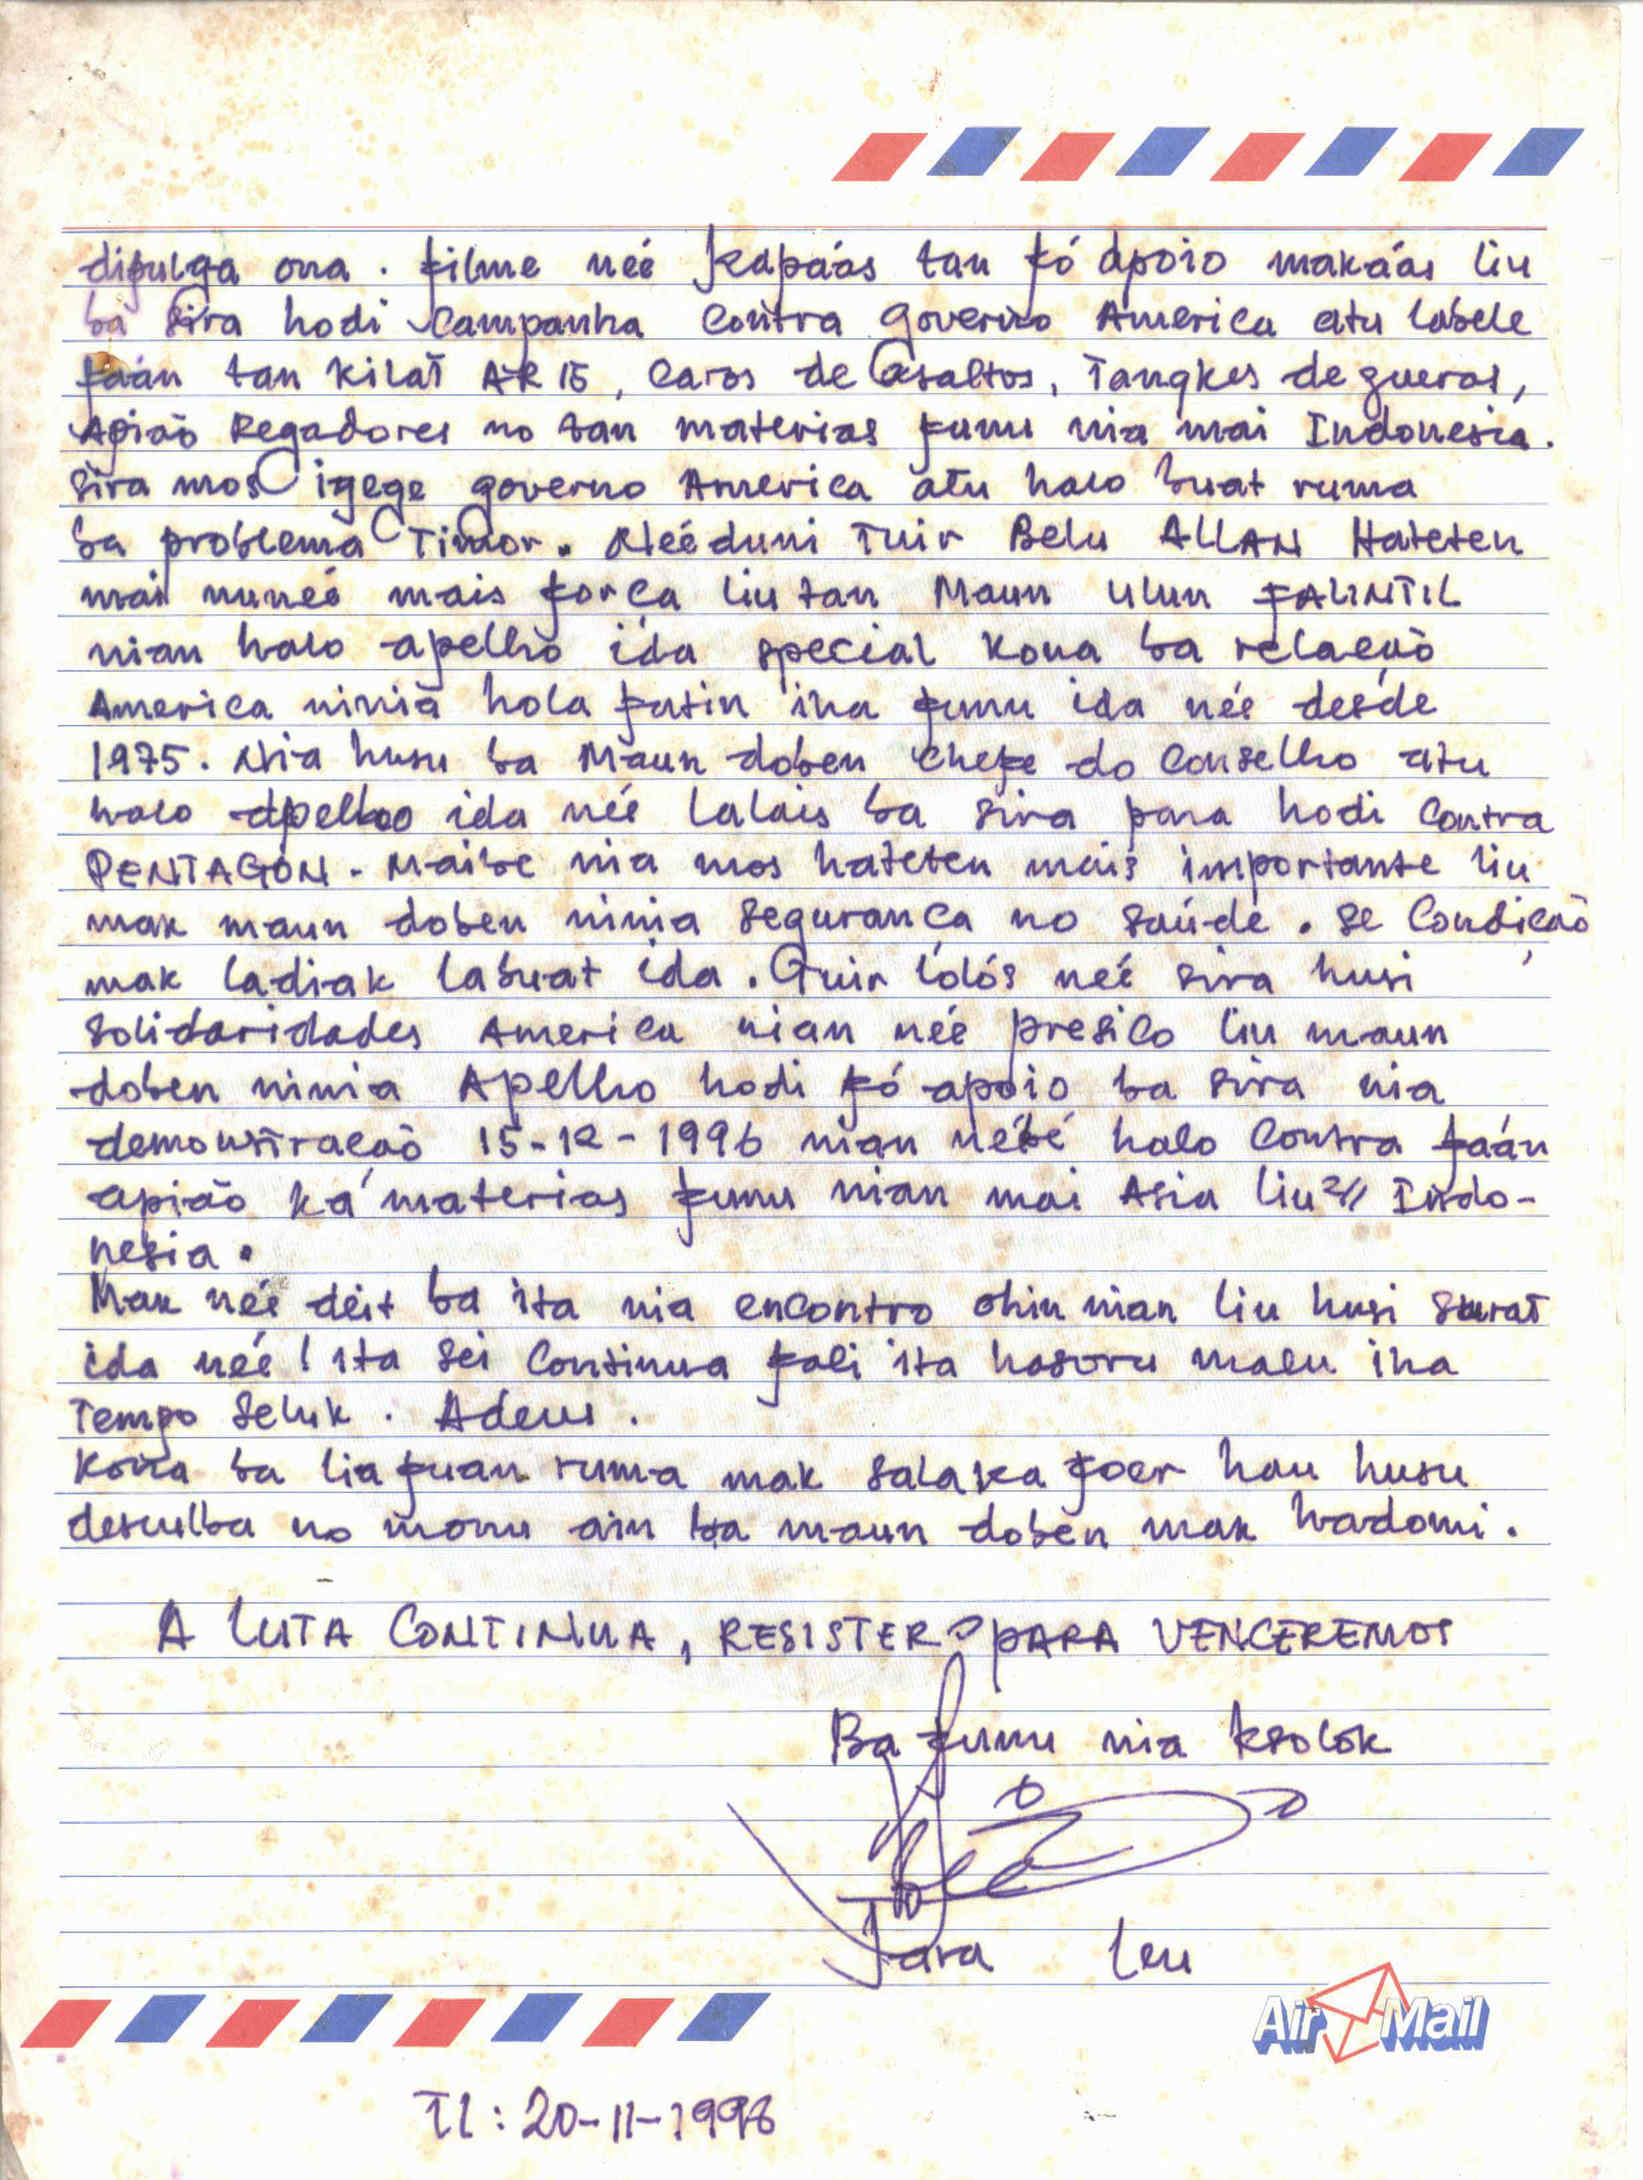 difulga ona. filme neé kapaás tan fó apoio makaás liu
ba sira hodi campanha contra governo America atu labele
faán tan kilat AR 15, caros de Asaltos, Tangkes de gueras,
Apiaõ Regadores no tan materias funu nia mai Indonesia.
sira mos igege governo America atu halo buat ruma
ba problema Timor. Neéduni Tuir Belu ALLAN Hateten
mai nuneé mais forca liu tan Maun ulun FALINTIL
nian halo apelho ida special kona ba relacaõ
America ninia hola fatin iha funu ida neé desde
1975. Nia husu ba Maun doben chefe do Conselho atu
halo apelho ida neé lalais ba sira para hodi contra
PENTAGON. Maibe nia mos hateten mais importante liu
mak maun doben ninia seguranca no saúde. se Condicaõ
mak ladiak labuat ida. Tuir lolós neé sira husi
solidaridades America nian neé presico liu maun
doben ninia Apelho hodi fó apoio ba sira nia
demonstracaõ 15-12-1996 nian nebé halo contra faán
apiaõ ká materias funu nian mai Asia liu2// Indo-
nesia.
Mak neé deit ba ita nia encontro ohin nian liu husi surat
ida neé! ita sei continua fali ita hasoru malu iha
Tempo seluk. Adeus.
Kona ba liafuan ruma mak sala ka foer hau husu
desculba no monu ain ba maun doben mak hadomi.
A LUTA CONTINUA, RESISTER PARA VENCEREMOS
Ba funu nia ksolok
Tara Leu
Air Mail
TL: 20-11-1996